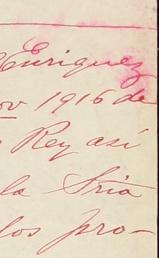 Enriquez
nov 1916 de
Rey así
la Sria
los pro-